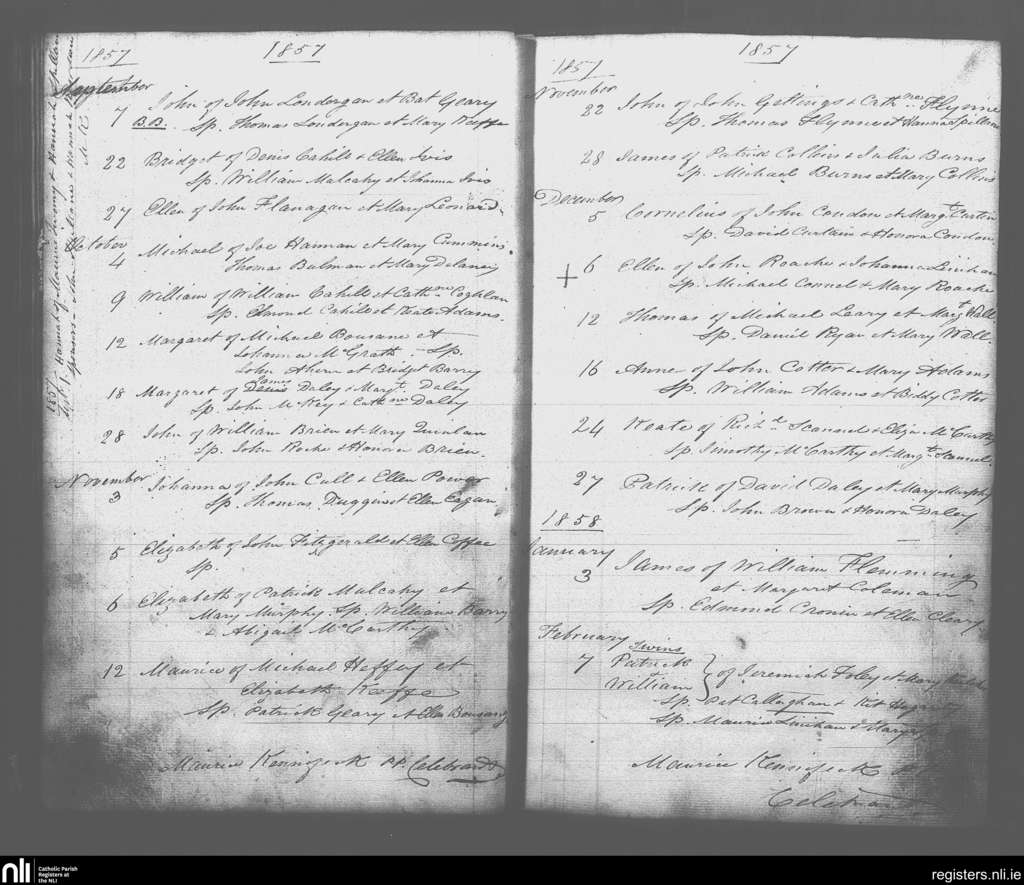 1857
1857
September
7 John of John Londergan et Bat Geary
B.B. Sp. Thomas Londergan et Mary Keeffe
22 Bridget of Denis Cahill & Ellen Ivis
Sp. William Mulcahy et Johanna Ivis
27 Ellen of John Flanagan et Mary Leonard
October
4 Michael of Joe Hannan et Mary Cummins
Thomas Bulman et Mary Delaney
9 William of William Cahill et Cathne Coghlan
Sp. Edmond Cahill et Kate Adams.
12 Margaret of Michael Bousane et
Johanna McGrath. Sp.
John Ahern et Bridget Barry
James
18 Margaret of Denis Daley & Margt Daley
Sp. John McKey & Cathne Daley
28 John of William Brien et Mary Quinlan
Sp. John Roche & Honora Brien.
November
3 Johanna of John Cull & Ellen Power
Sp. Thomas Duggin et Ellen Eagan
5 Elizabeth of John Fitzgerald et Ellen Coffee
Sp.
6 Elizabeth of Patrick Mulcahy et
Mary Murphy. Sp. William Barry
& Abigail McCarthy
12 Maurice of Michael Heffey et
Elizabeth Keeffe
Sp. Patrick Geary et Ellen Bousane
Maurice Kennifeck P.P. Celebrand
1857
Sept. 1. Hannah of Maurice
sponsors
1857
1857
November
22 John of John Gettings & Cathne Flynne
Sp. Thomas Flynne et Hanna Spillane
28 James of Patrick Collins & Julia Burns
Sp. Michael Burns et Mary Collins
December
5 Cornelius of John Condon et Margt Curtin
Sp. David Curtain & Honora Condon
+ 6 Ellen of John Roache & Johanna Linihan
Sp. Michael Connel & Mary Roache
12 Thomas of Michael Leary et Margt Wall.
Sp. Daniel Ryan et Mary Wall
16 Anne of John Cotter & Mary Adams
Sp. William Adams et Biddy Cotter
24 Keate of Richd Scannel & Eliza McCarthy
Sp. Timothy McCarthy et Margt Scannel.
27 Patrick of David Daley et Mary Murphy
Sp. John Brown & Honora Daley
1858
January
3 James of William Flemming
et Margaret Coleman
Sp. Edmund Cronin et Ellen Cleary
February
Twins
7 Patrick
+
William } of Jeremiah Foley et Mary
Sp. Pat Callaghan & Kit
Sp. Maurice Linihan & Mary
Maurice Kennifeck
Celebrand
nli Catholic Parish
Registers
at the NLI
registers.nli.ie